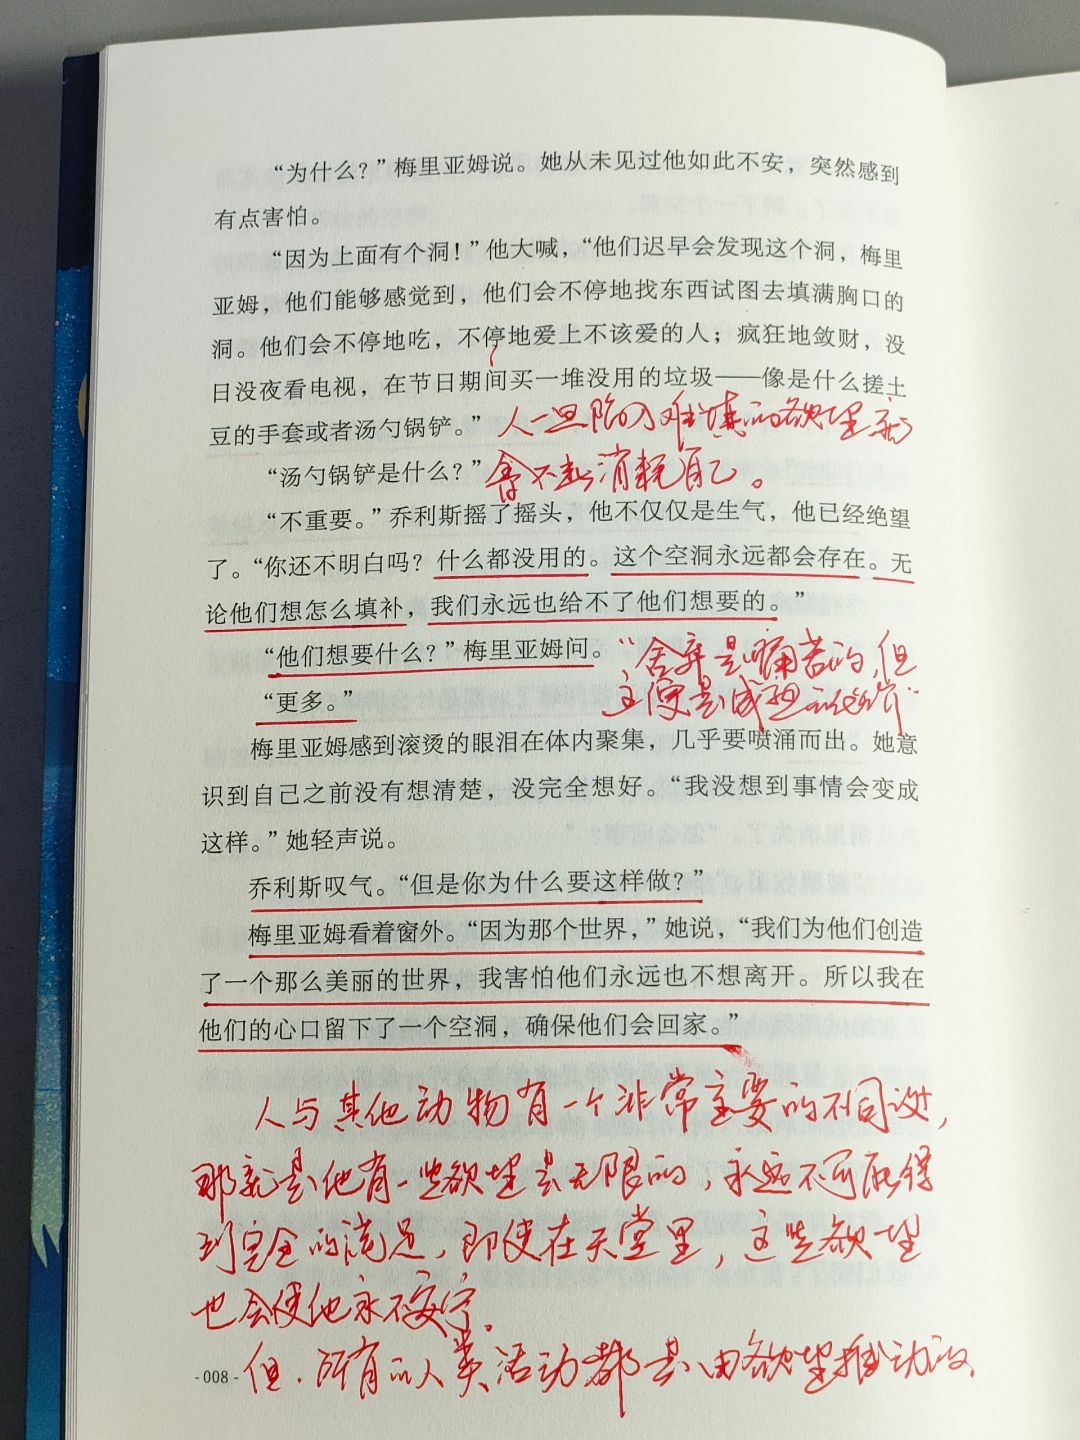 “为什么？”梅里亚姆说。她从未见过他如此不安，突然感到
有点害怕。
“因为上面有个洞！”他大喊，“他们迟早会发现这个洞，梅里
亚姆，他们能够感觉到，他们会不停地找东西试图去填满胸口的
洞。他们会不停地吃，不停地爱上不该爱的人；疯狂地敛财，没
日没夜看电视，在节日期间买一堆没用的垃圾——像是什么搓土
豆的手套或者汤勺锅铲。”
人一旦陷入难填的欲望就
“汤勺锅铲是什么？”
会不断消耗自己。
“不重要。”乔利斯摇了摇头，他不仅仅是生气，他已经绝望
了。“你还不明白吗？什么都没用的。这个空洞永远都会存在。无
论他们想怎么填补，我们永远也给不了他们想要的。”
“他们想要什么？”梅里亚姆问。
“舍弃是痛苦的，但
“更多。”
是成
梅里亚姆感到滚烫的眼泪在体内聚集，几乎要喷涌而出。她意
识到自己之前没有想清楚，没完全想好。“我没想到事情会变成
这样。”她轻声说。
乔利斯叹气。“但是你为什么要这样做？”
梅里亚姆看着窗外。“因为那个世界，”她说，“我们为他们创造
了一个那么美丽的世界，我害怕他们永远也不想离开。所以我在
他们的心口留下了一个空洞，确保他们会回家。”
人与其他动物有一个非常主要的不同说，
那就是他有一些欲望是无限的，永远不可能得
到完全的满足，即使在天堂里，这些欲望
也会使他永不安宁。
但，所有的人类活动都是由欲望推动的。
-008-